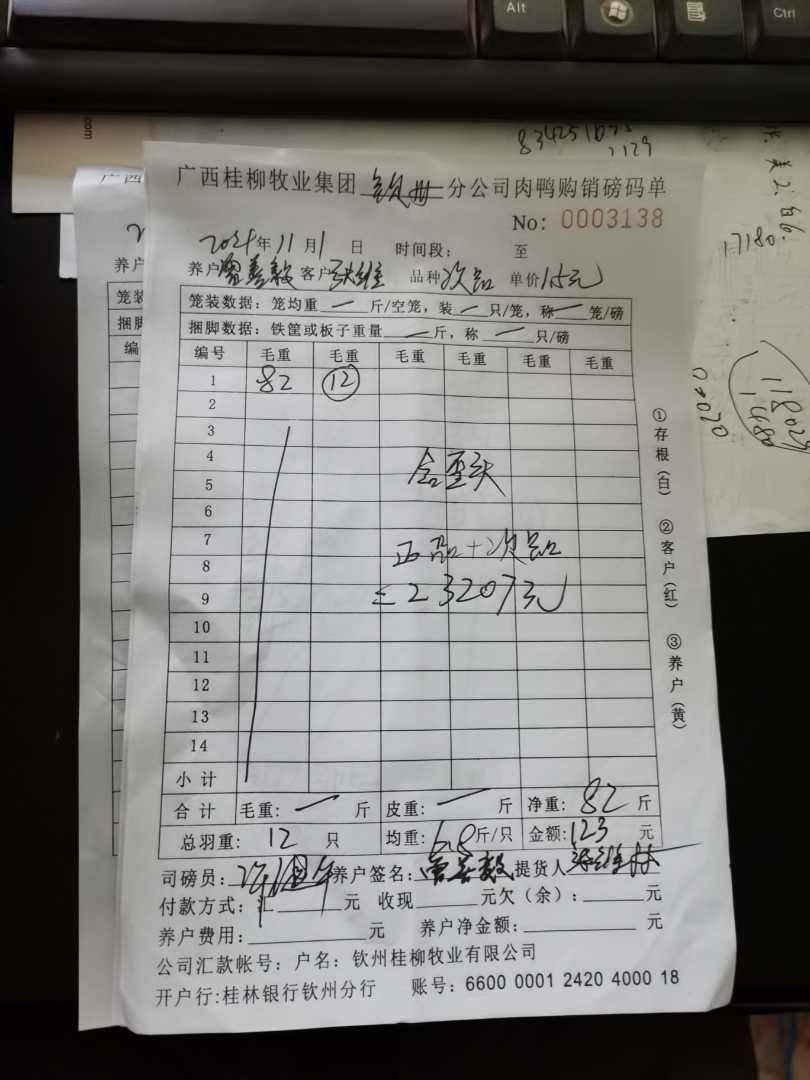 Alt
Ctrl
.com
1129
17180
广西桂柳牧业集团 钦州 分公司肉鸭购销磅码单
No: 0003138
2024年11月1日 时间段: 至
养户 曾善毅 客户 张维 品种 次品 单价 1.5元
笼装数据: 笼均重 — 斤/空笼, 装 — 只/笼, 称 — 笼/磅
捆脚数据: 铁筐或板子重量 — 斤, 称 — 只/磅
编号 毛重 毛重 毛重 毛重 毛重 毛重
1 82 12
2
3
4
含歪头
5
6
7
正品+次品
8
9 =23207元
10
11
12
13
14
小计
合计 毛重: — 斤 皮重: — 斤 净重: 82 斤
总羽重: 12 只 均重: 6.8 斤/只 金额: 123 元
司磅员: 养户签名: 曾善毅 提货人
付款方式: 汇 元 收现 元欠(余): 元
养户费用: 元 养户净金额: 元
公司汇款帐号: 户名: 钦州桂柳牧业有限公司
开户行:桂林银行钦州分行 账号: 6600 0001 2420 4000 18
①存根(白) ②客户(红) ③养户(黄)